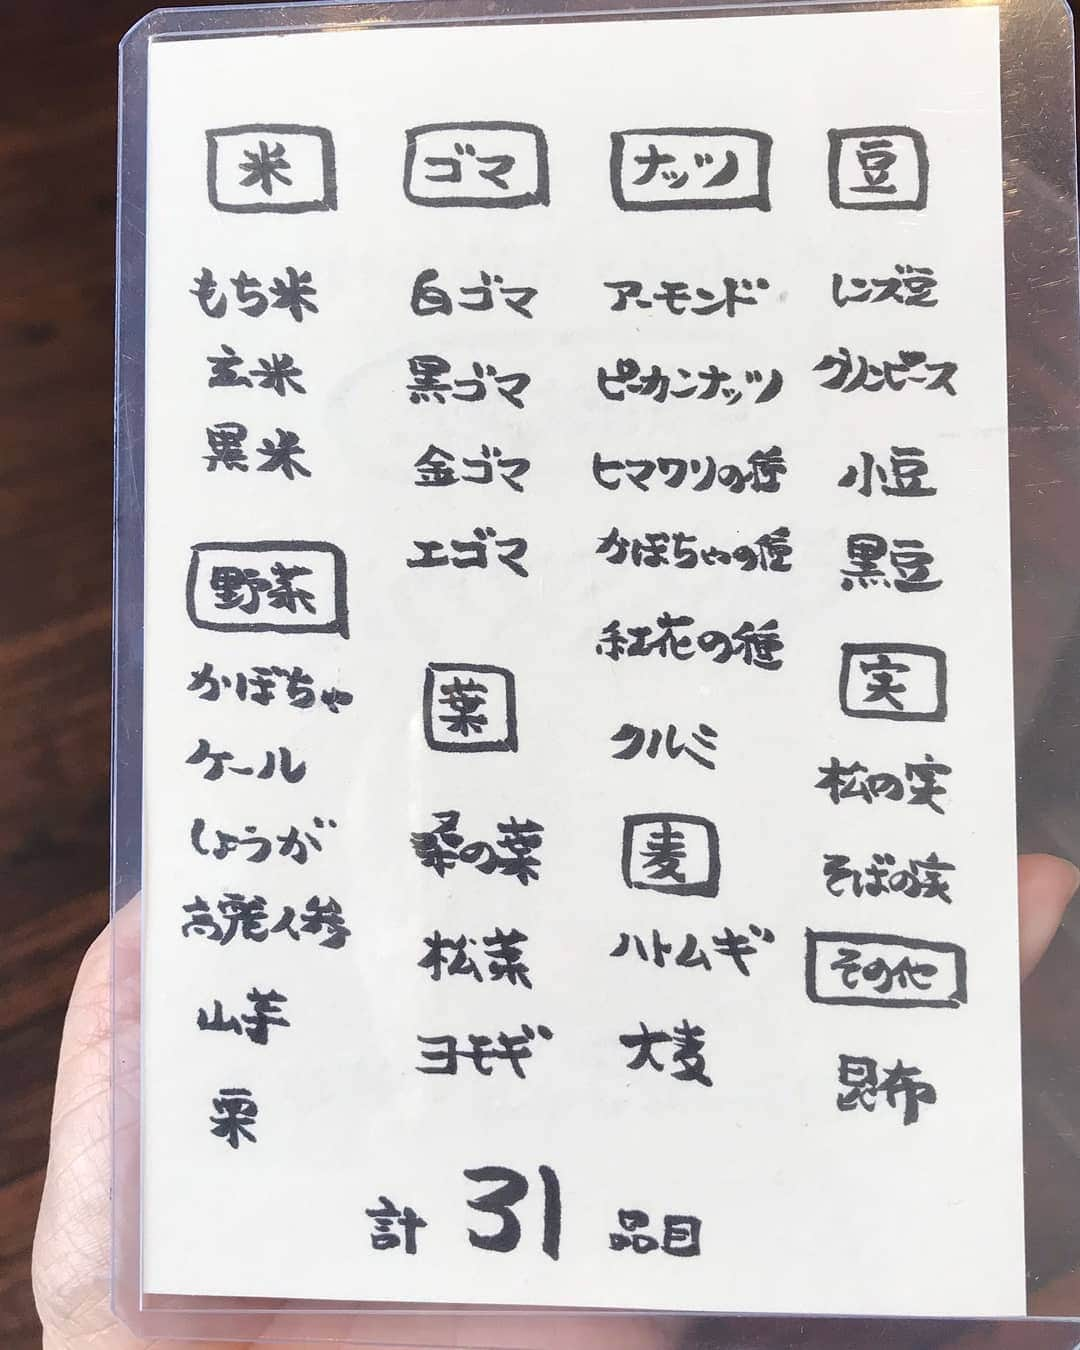 米
もち米
玄米
黒米
野菜
かぼちゃ
ケール
しょうが
高麗人参
山芋
栗
ゴマ
白ゴマ
黒ゴマ
金ゴマ
エゴマ
葉
桑の葉
松葉
ヨモギ
ナッツ
アーモンド
ピーカンナッツ
ヒマワリの種
かぼちゃの種
紅花の種
クルミ
麦
ハトムギ
大麦
豆
レンズ豆
グリンピース
小豆
黒豆
実
松の実
そばの実
その他
昆布
計 31 品目